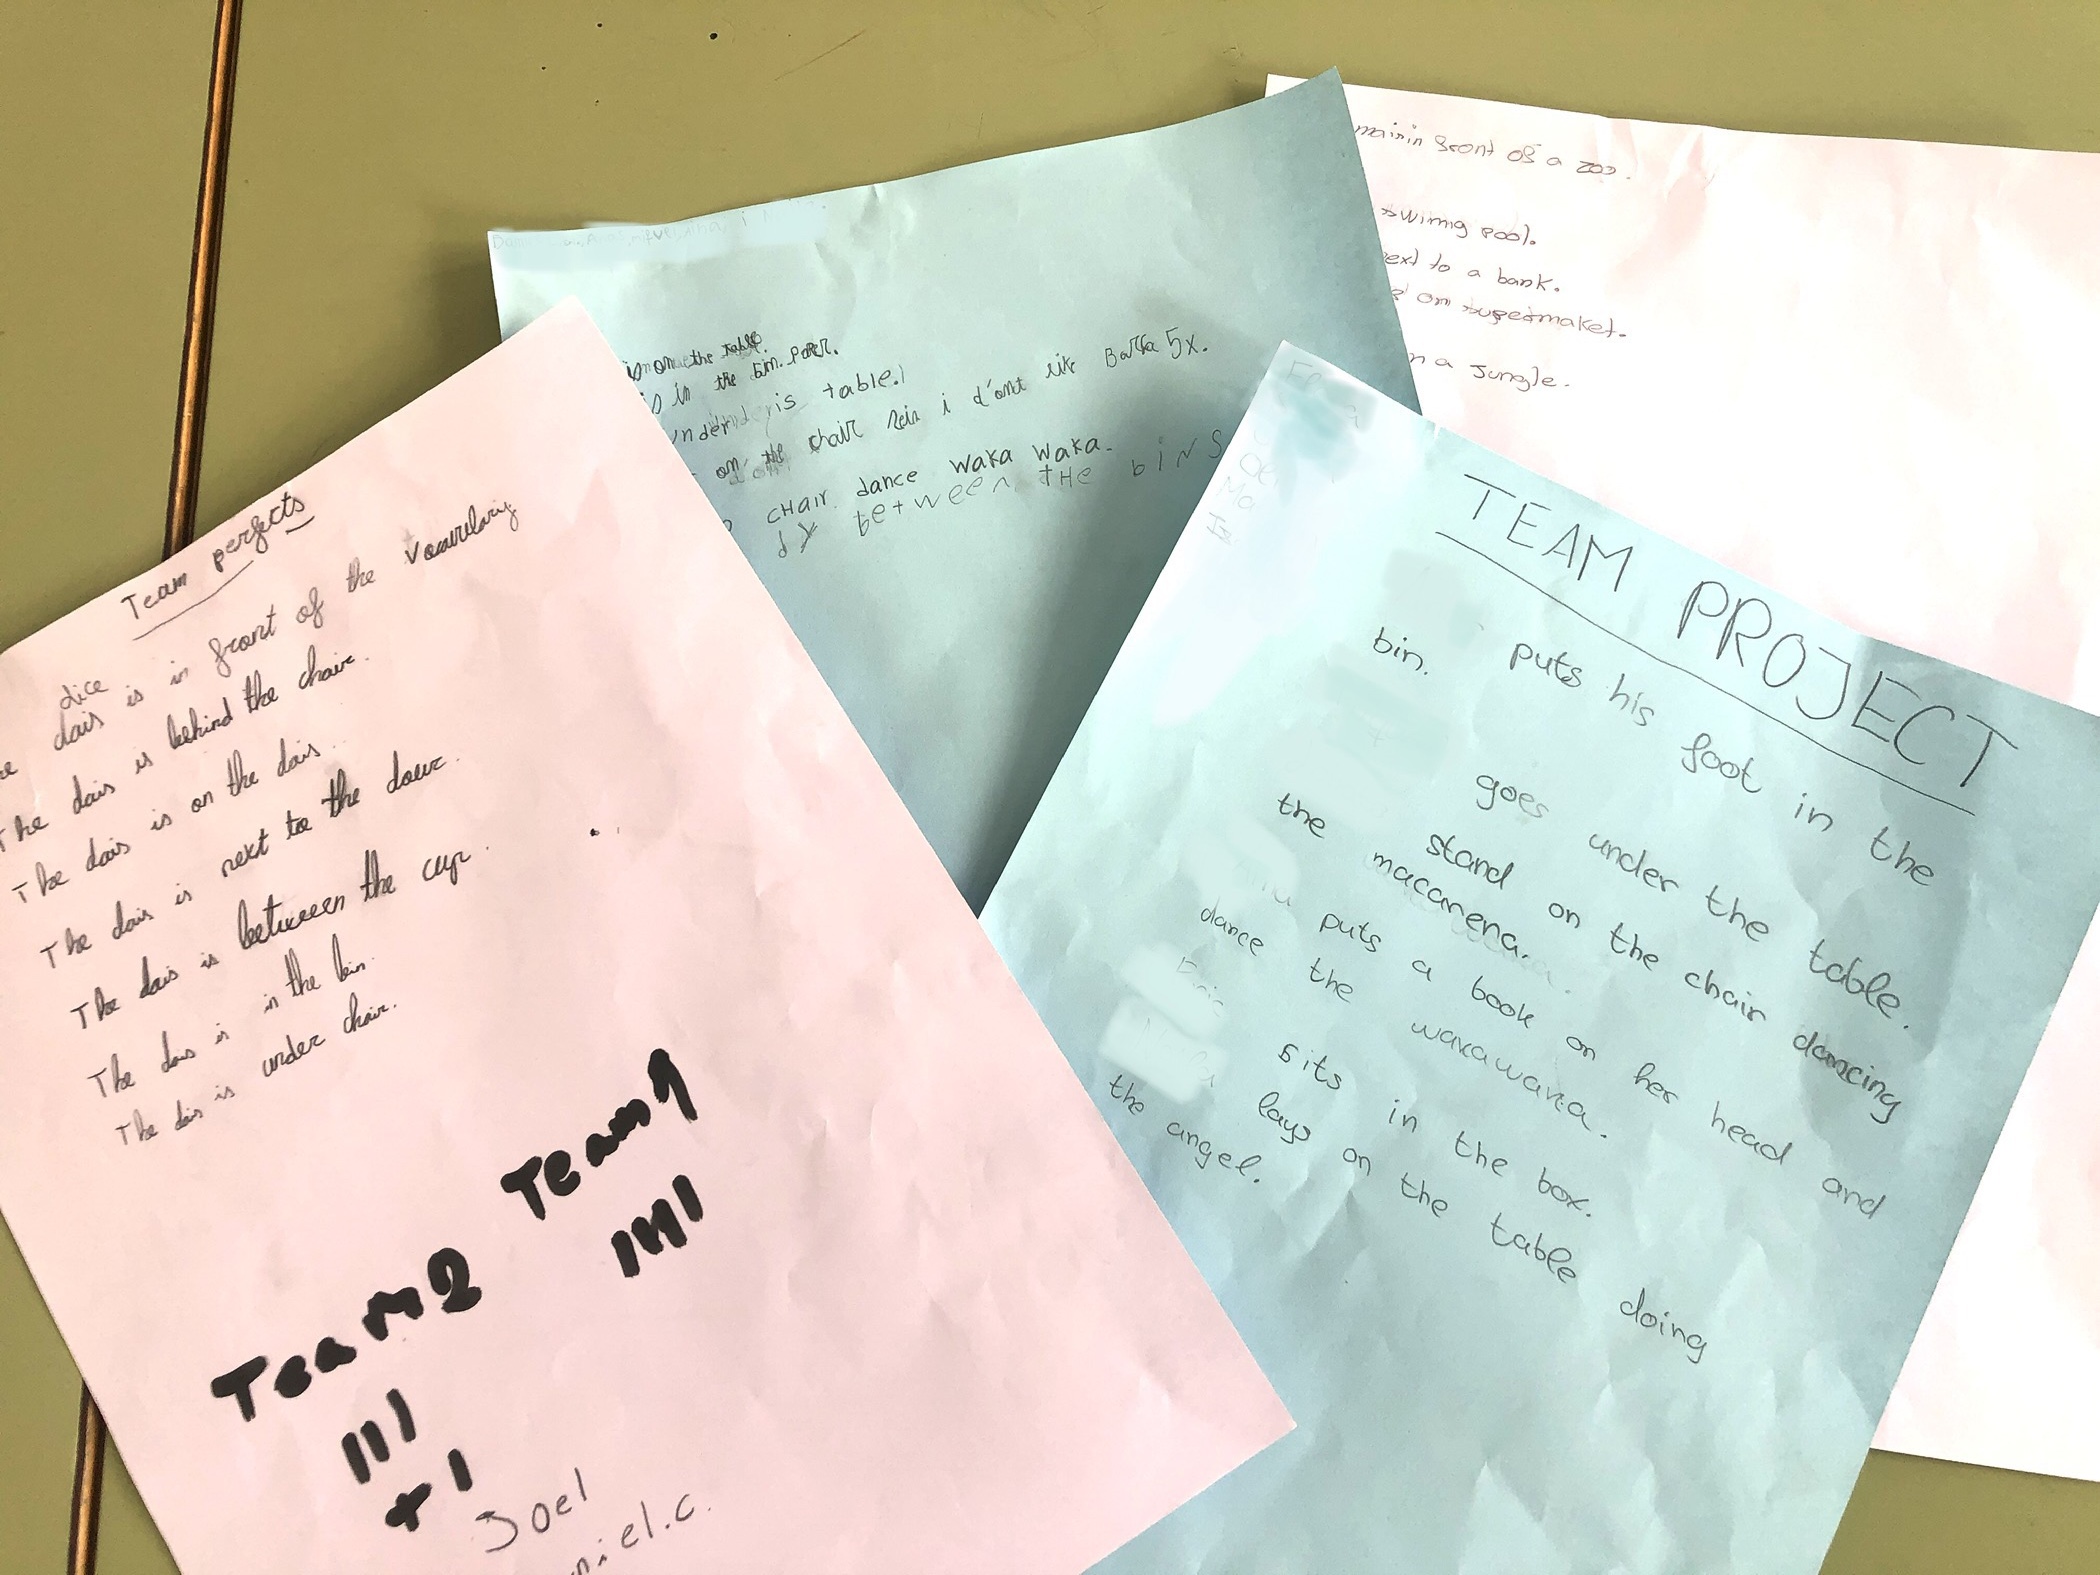 Team perfects
dice
dais is in front of the vocavulary
The dais is behind the chair.
The dais is on the dais.
The dais is next to the dour.
The dais is between the cup.
The dais is in the bin.
The dais is under chair.
Team 2 Team 1
+
Joel
niel.c.
is on the table.
is in the bin.
is table.
on the chair i d'ont lik Barka 5x.
CHair dance waka waka.
between tHe biNS
TEAM PROJECT
puts his foot in the
bin.
goes under the table.
stand on the chair dancing
the macarena.
puts a book on her head and
dance the wakawaka.
sits in the box.
lays on the table doing
the angel.
in front of a zoo.
swimg pool.
ext to a bank.
on supermaket.
n a jungle.